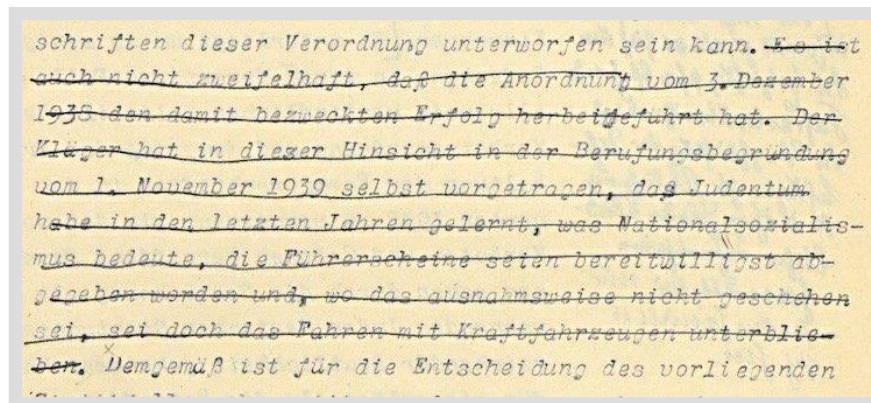 schriften dieser Verordnung unterworfen sein kann. Es ist
auch nicht zweifelhaft, daß die Anordnung vom 3. Dezember
1938 den damit bezweckten Erfolg herbeigeführt hat. Der
Kläger hat in dieser Hinsicht in der Berufungsbegründung
vom 1. November 1939 selbst vorgetragen, das Judentum
habe in den letzten Jahren gelernt, was Nationalsozialis-
mus bedeute, die Führerscheine seien bereitwilligst ab-
gegeben worden und, wo das ausnahmsweise nicht geschehen
sei, sei doch das Fahren mit Kraftfahrzeugen unterblie-
ben. Demgemäß ist für die Entscheidung des vorliegenden